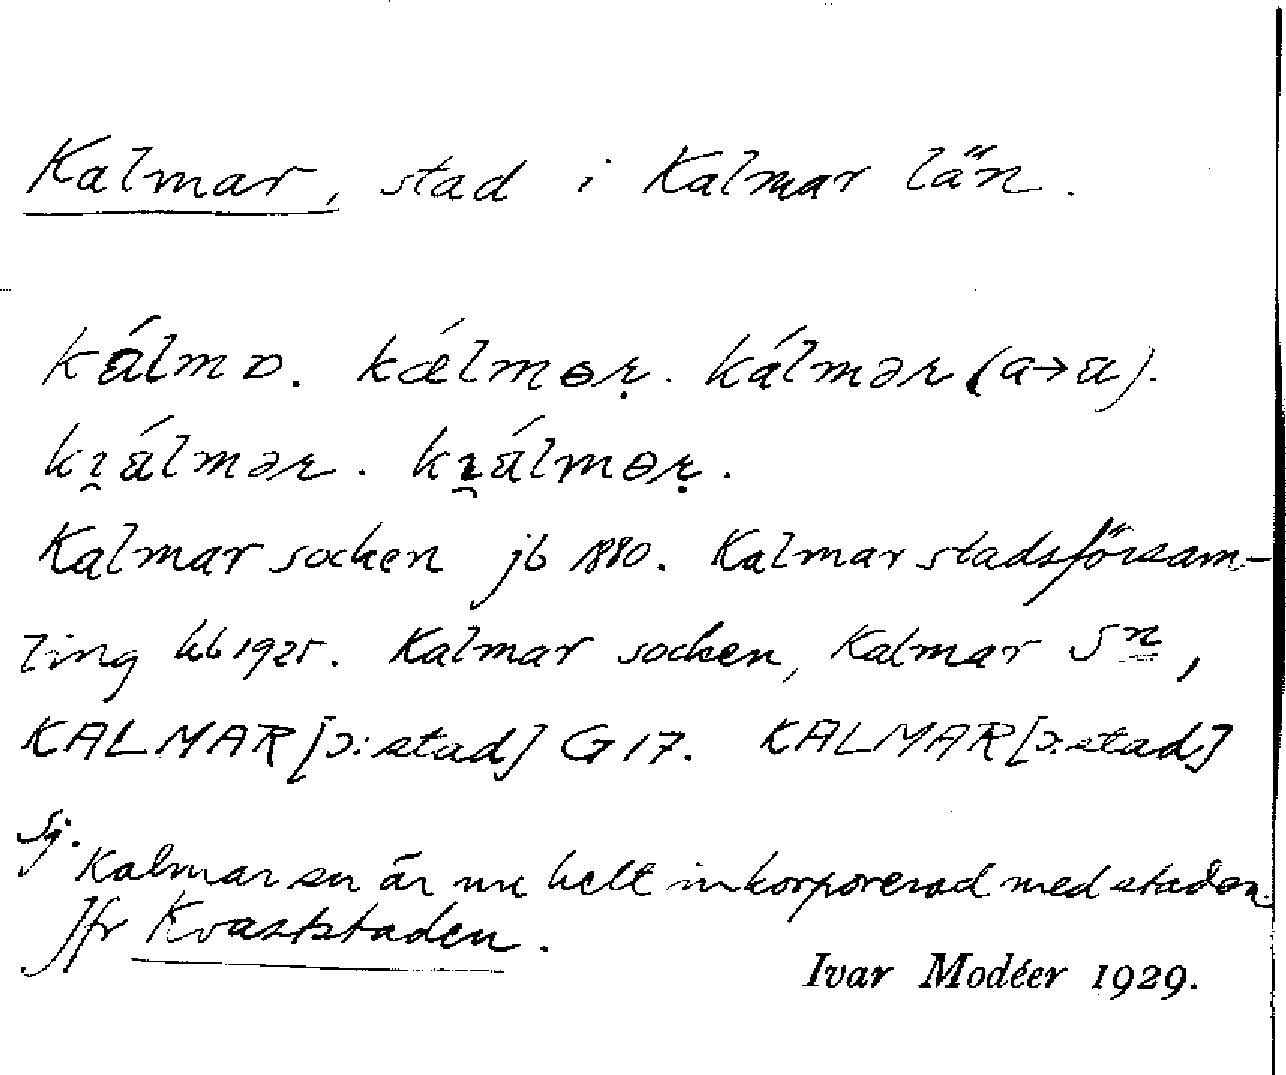 Kalmar, stad i Kalmar län.
kálmɒ. kǽlmɵṛ. kálmər (a→a).
kı̯álmər. kı̯álmɵṛ.
Kalmar socken jb 1880. Kalmar stadsförsam-
ling kb 1925. Kalmar socken, Kalmar Sn,
KALMAR [ɔ: stad] G 17. KALMAR [ɔ: stad]
Sj.
Kalmar sn är nu helt inkorporerad med staden.
Jfr Kvaststaden.
Ivar Modéer 1929.